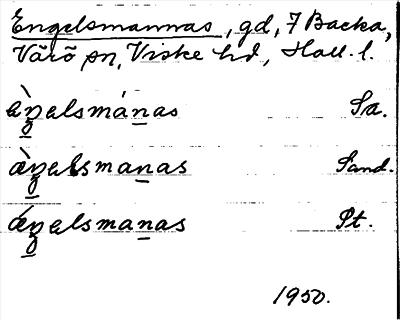 Engelsmannas, gd, 7 Backa,
Värö sn, Viske hd, Hall. l.
èŋ̲elsmán̲as Sa.
æ̀ŋ̲elsman̲as Sand.
ǽŋ̲elsman̲as Pt.
1950.